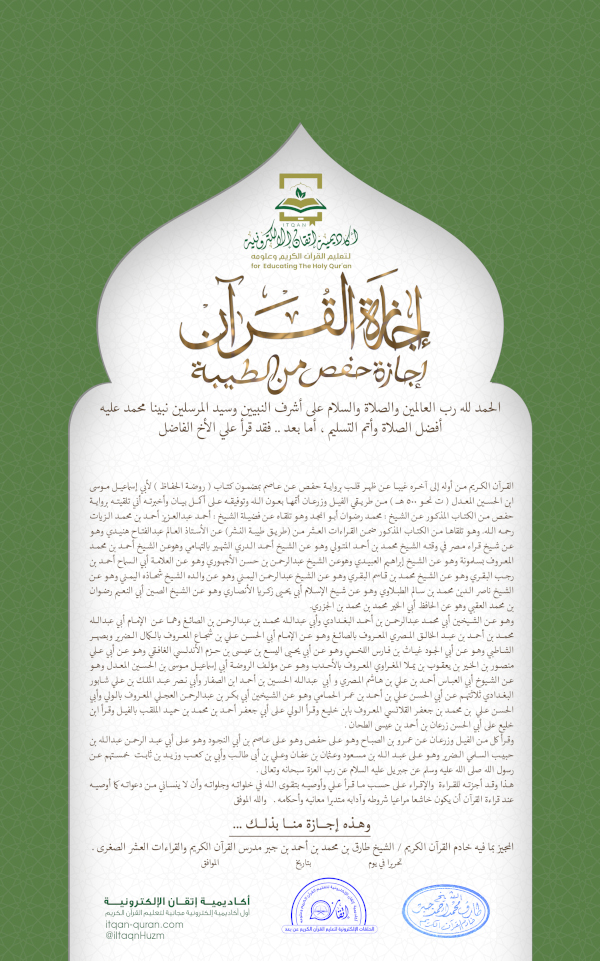 ITQAN
أكاديمية إتقان الإلكترونية
لتعليم القرآن الكريم وعلومه
for Educating The Holy Qur'an
إجازة القرآن
إجازة حفص من الطيبة
الحمد لله رب العالمين والصلاة والسلام على أشرف النبيين وسيد المرسلين نبينا محمد عليه
أفضل الصلاة وأتم التسليم ، أما بعد .. فقد قرأ علي الأخ الفاضل
القرآن الكريم من أوله إلى آخره غيبا عن ظهر قلب برواية حفص عن عاصم بمضمون كتاب ( روضة الحفاظ ) لأبي إسماعيل موسى
ابن الحسين المعدل ( ت نحو ٥٠٠ هـ ) من طريقي الفيل وزرعان أتمها بعون الله وتوفيقه على أكمل بيان وأخبرته أني تلقيته برواية
حفص من الكتاب المذكور عن الشيخ : محمد رضوان أبو المجد وهو تلقاه عن فضيلة الشيخ : أحمد عبدالعزيز أحمد بن محمد الزيات
رحمه الله. وهو تلقاها من الكتاب المذكور ضمن القراءات العشر من (طريق طيبة النشر) عن الأستاذ العالم عبدالفتاح هنيدي وهو
عن شيخ قراء مصر في وقته الشيخ محمد بن أحمد المتولي وهو عن الشيخ أحمد الدري الشهير بالتهامي وهوعن الشيخ أحمد بن محمد
المعروف بسلمونة وهو عن الشيخ إبراهيم العبيدي وهوعن الشيخ عبدالرحمن بن حسن الأجهوري وهو عن العلامة أبي السماح أحمد بن
رجب البقري وهو عن الشيخ محمد بن قاسم البقري وهو عن الشيخ عبدالرحمن اليمني وهو عن والده الشيخ شحاذه اليمني وهو عن
الشيخ ناصر الدين محمد بن سالم الطبلاوي وهو عن شيخ الإسلام أبي يحيى زكريا الأنصاري وهو عن الشيخ أبي النعيم رضوان
بن محمد العقبي وهو عن الحافظ أبي الخير محمد بن محمد بن الجزري.
وهو عن الشيخين أبي محمد عبدالرحمن بن أحمد البغدادي وأبي عبدالله محمد بن عبدالرحمن بن الصائغ وهما عن الإمام أبي عبدالله
محمد بن أحمد بن عبد الخالق المصري المعروف بالصائغ وهو عن الإمام أبي الحسن علي بن شجاع المعروف بالكمال الضرير وبصهر
الشاطبي وهو عن أبي الجود غياث بن فارس اللخمي وهو عن أبي يحيى اليسع بن عيسى بن حزم الأندلسي الغافقي وهو عن أبي علي
منصور بن الخير بن يعقوب بن يملا المغراوي المعروف بالأحدب وهو عن مؤلف الروضة أبي إسماعيل موسى بن الحسين المعدل وهو
عن الشيوخ أبي العباس أحمد بن علي بن هاشم المصري و أبي عبدالله الحسين بن أحمد ابن الصفار وأبي نصر عبد الملك بن علي شابور
البغدادي ثلاثتهم عن أبي الحسن علي بن أحمد بن عمر الحمامي وهو عن الشيخين أبي بكر بن عبدالرحمن العجلي المعروف بالولي وأبي
الحسن علي بن محمد بن جعفر القلانسي المعروف بابن خليع وقرأ الولي على أبي جعفر أحمد بن محمد بن حميد الملقب بالفيل وقرأ ابن
خليع على أبي الحسن زرعان بن أحمد بن عيسى الطحان .
وقرأ كل من الفيل وزرعان عن عمرو بن الصباح وهو على حفص وهو على عاصم بن أبي النجود وهو على أبي عبد الرحمن عبدالله بن
حبيب السلمي الضرير وهو على عبد الله بن مسعود وعثمان بن عفان وعلي بن أبي طالب وأبي بن كعب وزيد بن ثابت خمستهم عن
رسول الله صلى الله عليه وسلم عن جبريل عليه السلام عن رب العزة سبحانه وتعالى .
هذا وقد أجزته للقراءة والإقراء على حسب ما قرأ علي وأوصيه بتقوى الله في خلواته وجلواته وأن لا ينساني من دعواته كما أوصيه
عند قراءة القرآن أن يكون خاشعا مراعيا شروطه وآدابه متدبرا معانيه وأحكامه . والله الموفق
وهذه إجازة منا بذلك ...
المجيز بما فيه خادم القرآن الكريم / الشيخ طارق بن محمد بن أحمد بن جبر مدرس القرآن الكريم والقراءات العشر الصغرى .
تحريرا في يوم بتاريخ الموافق
أكاديمية إتقان الإلكترونية
أول أكاديمية إلكترونية مجانية لتعليم القرآن الكريم
itqan-quran.com
@iItaqnHuzm
إتقان
الحلقات الإلكترونية لتعليم القرآن الكريم عن بعد